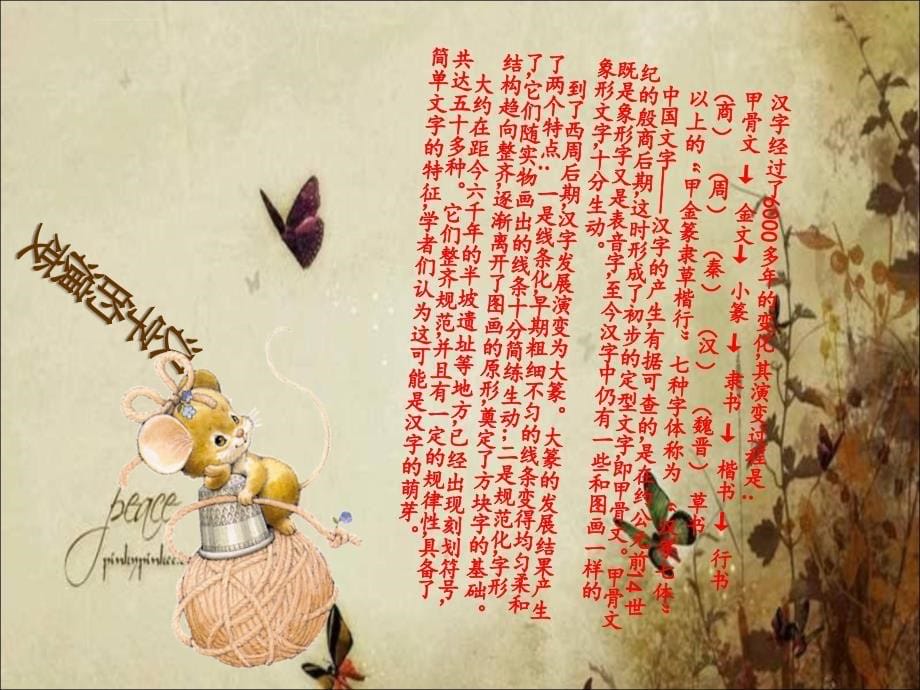 汉字经过了6000多年的变化,其演变过程是:
甲骨文→金文→小篆→隶书→楷书→行书
(商) (周) (秦) (汉) (魏晋) 草书
以上的“甲金篆隶草楷行”七种字体称为“汉字七体”
中国文字——汉字的产生,有据可查的,是在约公元前14世
纪的殷商后期,这时形成了初步的定型文字,即甲骨文。甲骨文
既是象形字又是表音字,至今汉字中仍有一些和图画一样的
象形文字,十分生动。
到了西周后期,汉字发展演变为大篆。大篆的发展结果产生
了两个特点:一是线条化,早期粗细不匀的线条变得均匀柔和
了,它们随实物画出的线条十分简练生动;二是规范化,字形
结构趋向整齐,逐渐离开了图画的原形,奠定了方块字的基础。
大约在距今六千年的半坡遗址等地方,已经出现刻划符号,
共达五十多种。它们整齐规范,并且有一定的规律性,具备了
简单文字的特征,学者们认为这可能是汉字的萌芽。
汉字的演变
peace